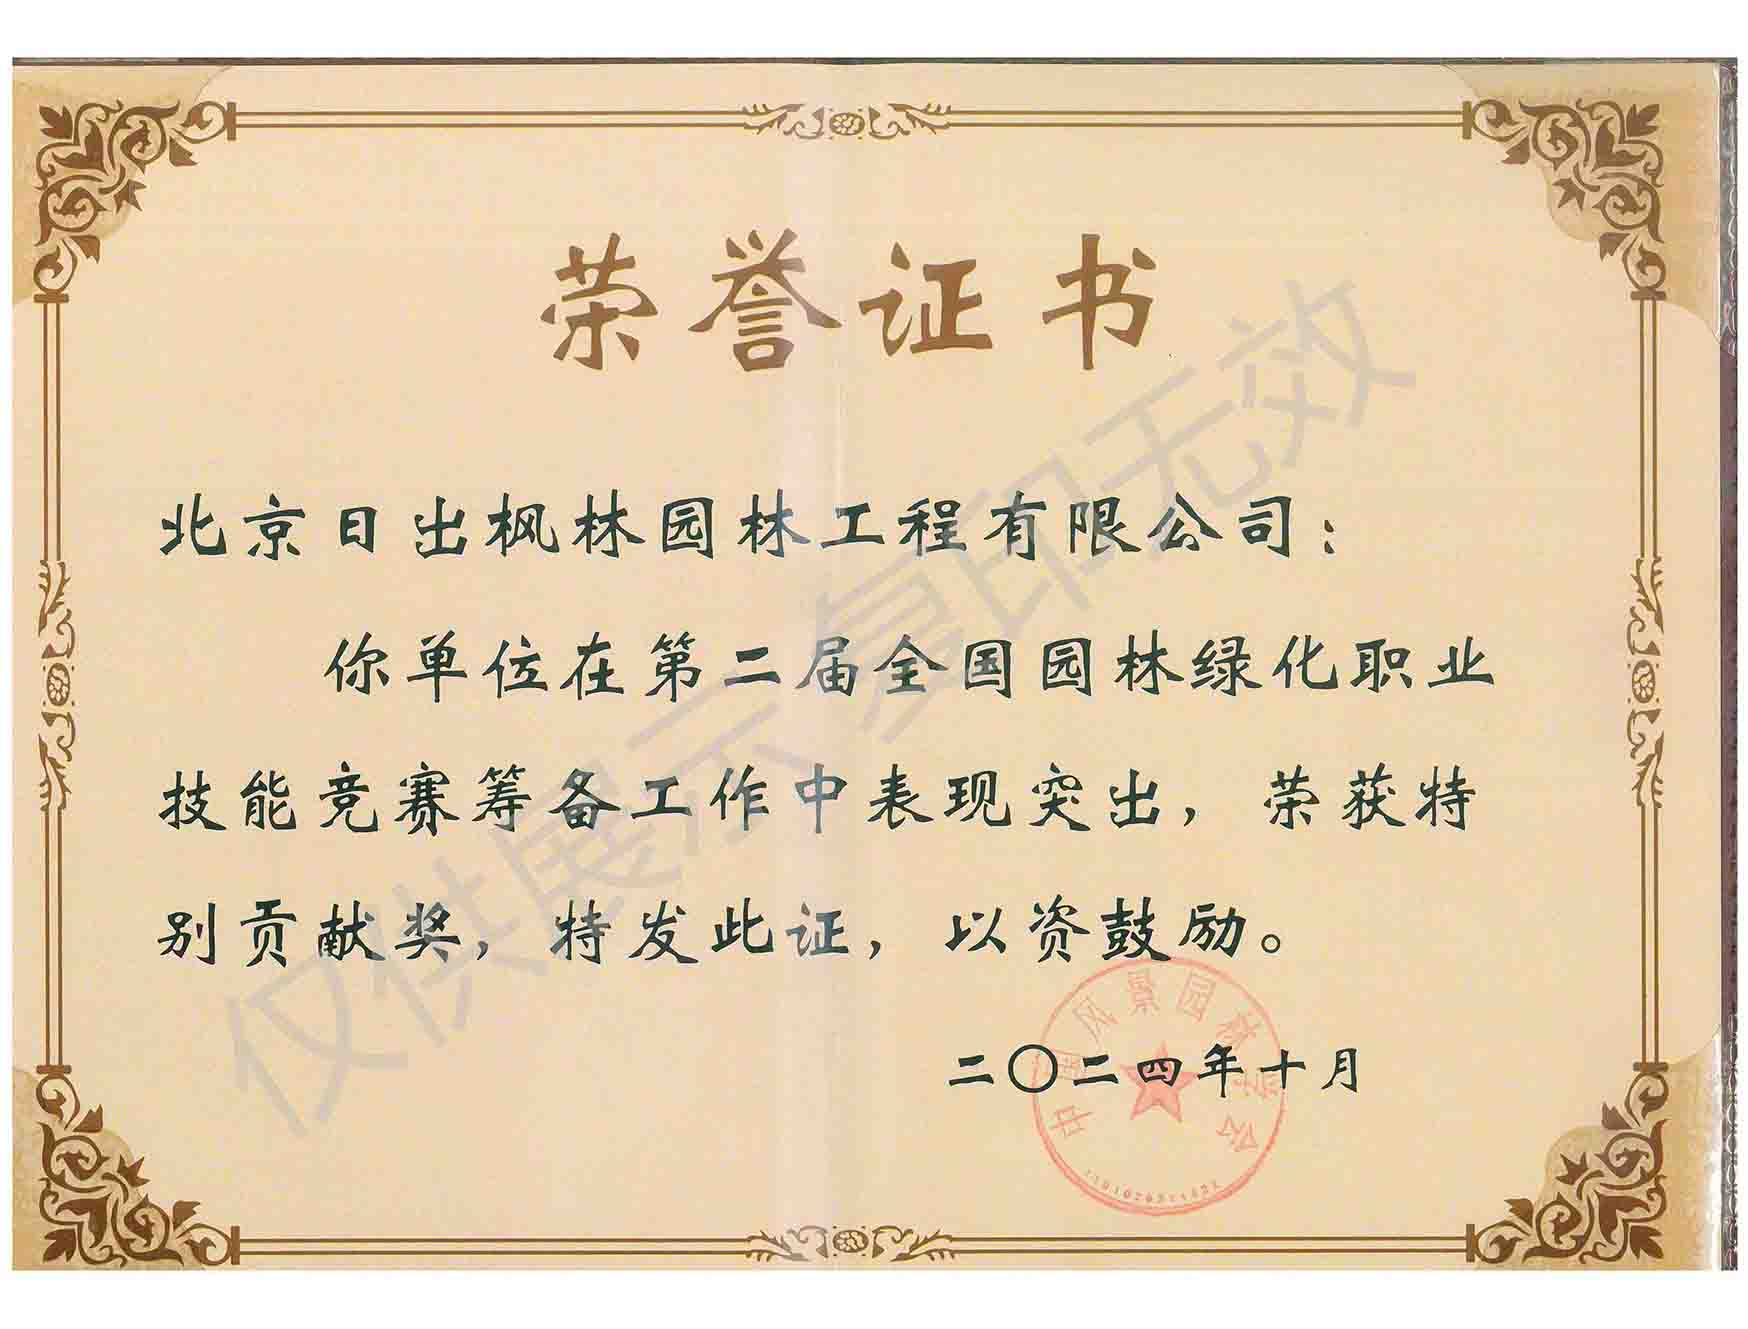 荣誉证书
北京日出枫林园林工程有限公司：
你单位在第二届全国园林绿化职业
技能竞赛筹备工作中表现突出，荣获特
别贡献奖，特发此证，以资鼓励。
二〇二四年十月
中国风景园林学会
仅供展示 复印无效